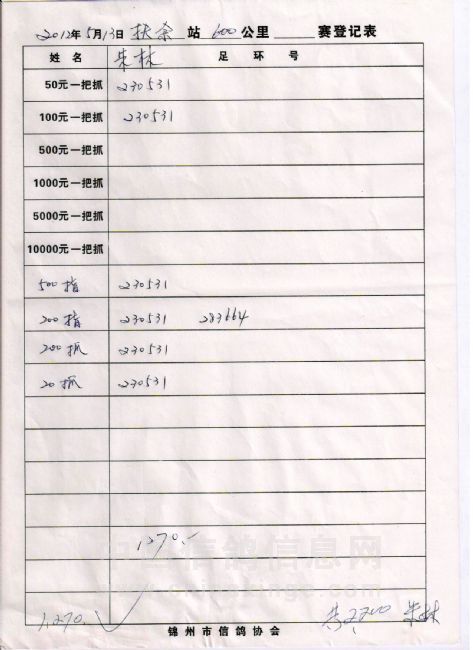 2012年5月13日 扶余 站 600 公里 ______ 赛登记表
姓名 朱林 足环号
50元一把抓 230531
100元一把抓 230531
500元一把抓
1000元一把抓
5000元一把抓
10000元一把抓
500 指 230531
200 指 230531 283664
200 抓 230531
20 抓 230531
1270.-
信鸽信息网
1,270.
2200 朱林
锦州市信鸽协会